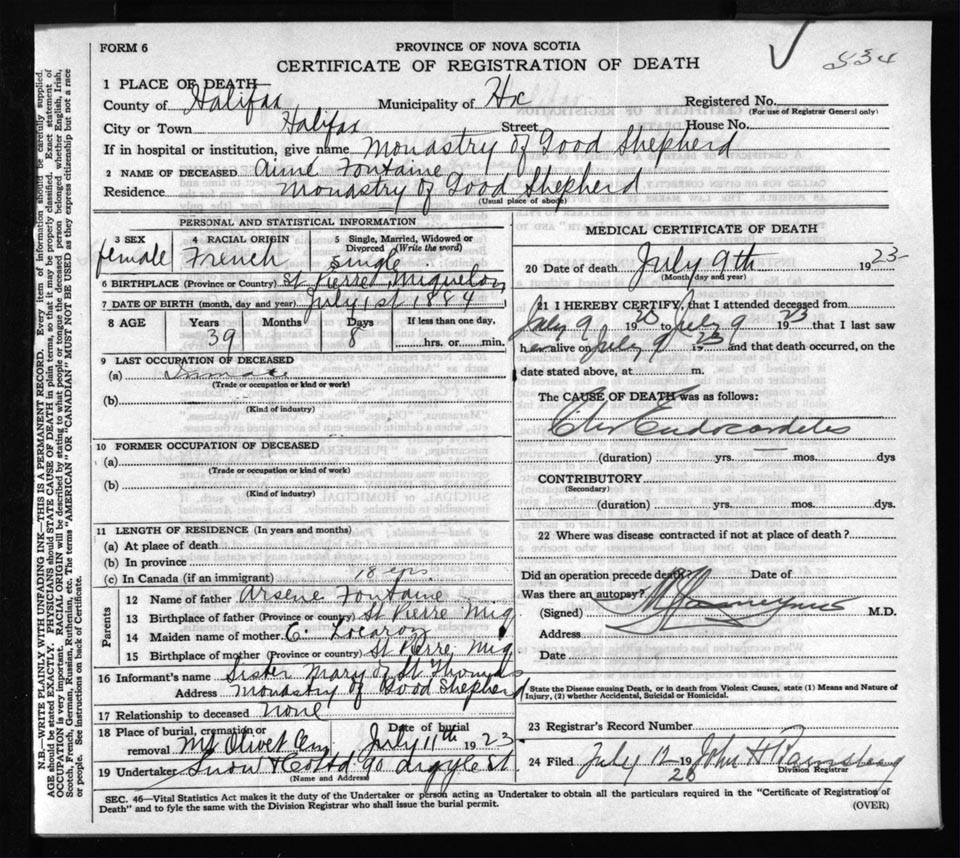 FORM 6
PROVINCE OF NOVA SCOTIA
834
CERTIFICATE OF REGISTRATION OF DEATH
1 PLACE OF DEATH
County of Halifax Municipality of Hx Registered No.
(For use of Registrar General only)
City or Town Halifax Street House No.
If in hospital or institution, give name Monastry of Good Shepherd
2 NAME OF DECEASED Aimé Fontaine
Residence Monastry of Good Shepherd
(Usual place of abode)
PERSONAL AND STATISTICAL INFORMATION
3 SEX 4 RACIAL ORIGIN 5 Single, Married, Widowed or Divorced (Write the word)
female French Single
6 BIRTHPLACE (Province or Country) St Pierre Miquelon
7 DATE OF BIRTH (month, day and year) July 1st 1884
8 AGE Years Months Days If less than one day,
39 8 hrs. or min.
9 LAST OCCUPATION OF DECEASED
(a) Inmate
(Trade or occupation or kind or work)
(b)
(Kind of industry)
10 FORMER OCCUPATION OF DECEASED
(a)
(Trade or occupation or kind of work)
(b)
(Kind of industry)
11 LENGTH OF RESIDENCE (In years and months)
(a) At place of death
(b) In province
(c) In Canada (if an immigrant) 18 yrs
Parents
12 Name of father Arsene Fontaine
13 Birthplace of father (Province or country) St Pierre Miq
14 Maiden name of mother C.
15 Birthplace of mother (Province or country) St Pierre Miq
16 Informant's name Sister Mary of St Thomas
Address Monastry of Good Shepherd
17 Relationship to deceased none
18 Place of burial, cremation or removal Mt Olivet Cem Date of burial July 11th 1923
19 Undertaker Snow & Co Ltd 90 Argyle St
(Name and Address)
MEDICAL CERTIFICATE OF DEATH
20 Date of death July 9th 1923
(Month, day and year)
21 I HEREBY CERTIFY, that I attended deceased from
July 9 19 to July 9 1923 that I last saw
her alive on July 9 1923 and that death occurred, on the
date stated above, at m.
The CAUSE OF DEATH was as follows:
Chr Endocardites
(duration) yrs. mos. dys
CONTRIBUTORY
(Secondary)
(duration) yrs. mos. dys.
22 Where was disease contracted if not at place of death?
Did an operation precede death? Date of
Was there an autopsy?
(Signed) M.D.
Address
Date
State the Disease causing Death, or in death from Violent Causes, state (1) Means and Nature of Injury, (2) whether Accidental, Suicidal or Homicidal.
23 Registrar's Record Number
24 Filed July 12 19 John H
Division Registrar
SEC. 46—Vital Statistics Act makes it the duty of the Undertaker or person acting as Undertaker to obtain all the particulars required in the "Certificate of Registration of
Death" and to fyle the same with the Division Registrar who shall issue the burial permit.
(OVER)
N.B.—WRITE PLAINLY WITH UNFADING INK—THIS IS A PERMANENT RECORD. Every item of information should be carefully supplied.
AGE should be stated EXACTLY. PHYSICIANS should STATE CAUSE OF DEATH in plain terms, so that it may be properly classified. Exact statement of
OCCUPATION is very important. RACIAL ORIGIN will be described by stating to what people or tongue the deceased person belonged whether English, Irish,
Scotch, French, German, Russian, Ruthenian, etc. The terms "AMERICAN" OR "CANADIAN" MUST NOT BE USED as they express citizenship but not a race
or people. See instructions on back of Certificate.